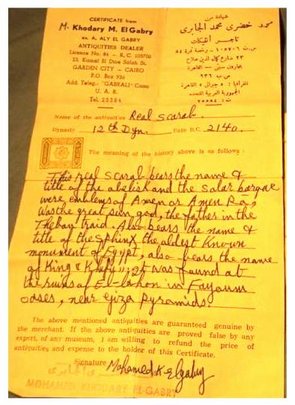 CERTIFICATE from
M. Khodary M. El Gabry
ex. A. ALY EL GABRY
ANTIQUITIES DEALER
Licence No. 84 - R. C. 107070
23, Kamel El Dine Salah St.
GARDEN CITY - CAIRO
P.O. Box 236
Add. Teleg. "GABRALI" Cairo
U. A. R.
Tel. 25284
شهادة من
محمد خضرى محمد الجابرى
القاهرة
Name of the antiquities Real scarab.
Dynasty 12th Dyn. Date B.C. 2140.
The meaning of the history above is as follows :
This real scarab bears the name &
title of the obelish and the Solar bargae
were emblems of Amen or Amen Ra,
was the great sun god, the father in the
Theban Traid. Also bears the name &
title of the Sphinx the aldest known
monument of Egypt, also bears the name
of King "Khufu", it was found at
the ruins of El-lahon in Fayaum
oases, near Giza Pyramids.
The above mentioned antiquities are guaranteed genuine by
the merchant. If the above antiquities are proved false by any
expert, of any museum, I am willing to refund the price of
antiquities and expense to the holder of this Certificate.
Signature Mohamed K. Elgabry
MOHAMED KHODARY EL-GABRY